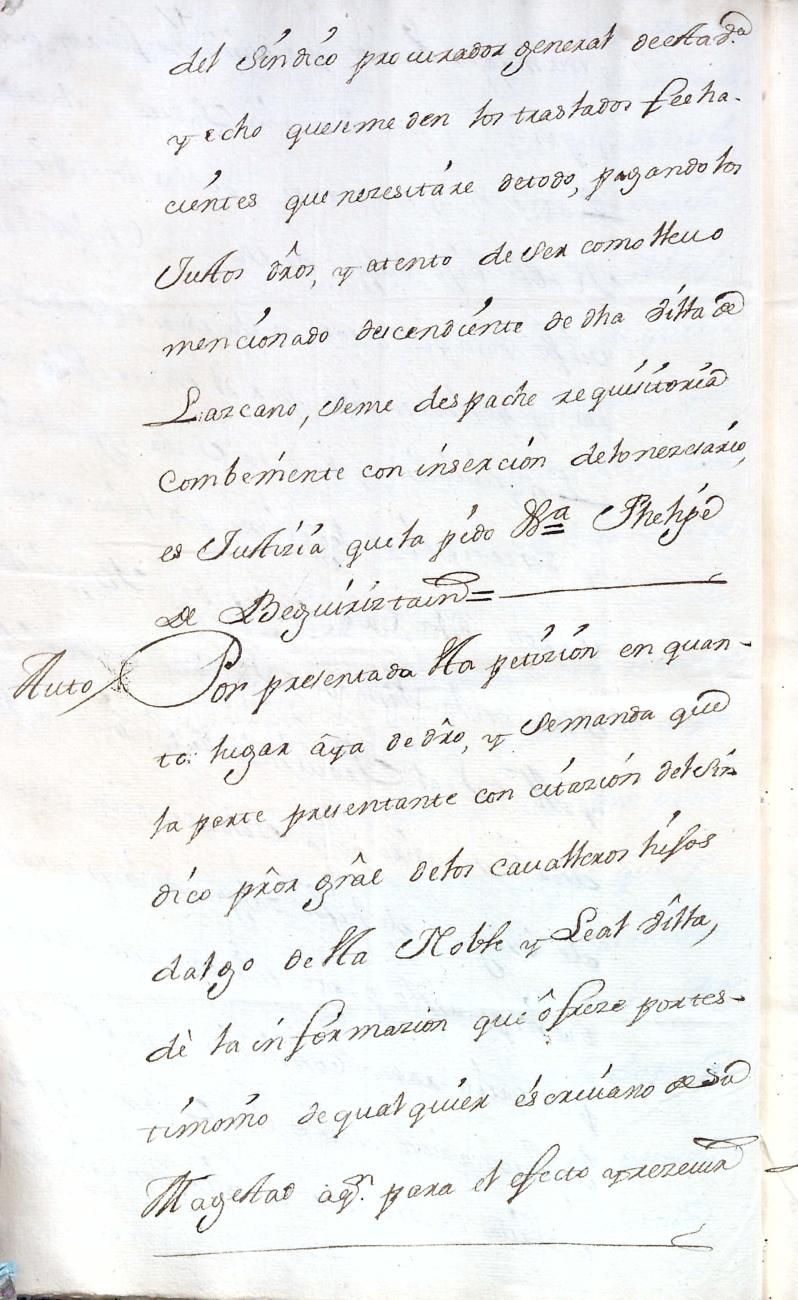 del Síndico procurador general de esta d.ª
y echo que se me den los traslados feeha-
cientes que nezesitare de todo, pagando los
Justos dr̂os, y atento de ser como llevo
mencionado descendiente de dha villa de
Lazcano, se me despache requisitoria
combeniente con inserción de lo nezesario,
es Justizia que la pido &ª Phelipe
De Beguiriztain=
Auto Por presentada esta petizion en quan-
to lugar âya de dr̂o, y se manda que
la parte presentante con citazion del Sín
dico pr̂or gr̂al de los cavalleros hijos
dalgo de esta Noble y Leal villa,
dè la informazion que ôfreze por tes-
timonio de qualquier escrivano de su
Magestad aq.ⁿ para el efecto y rezevir